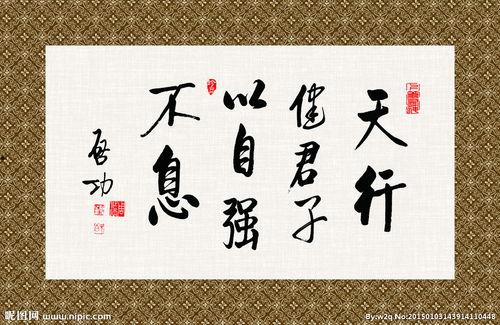 天行
健君子
以自强
不息
启功
昵图网 www.nipic.com
By:w2q No:20150103143914110448